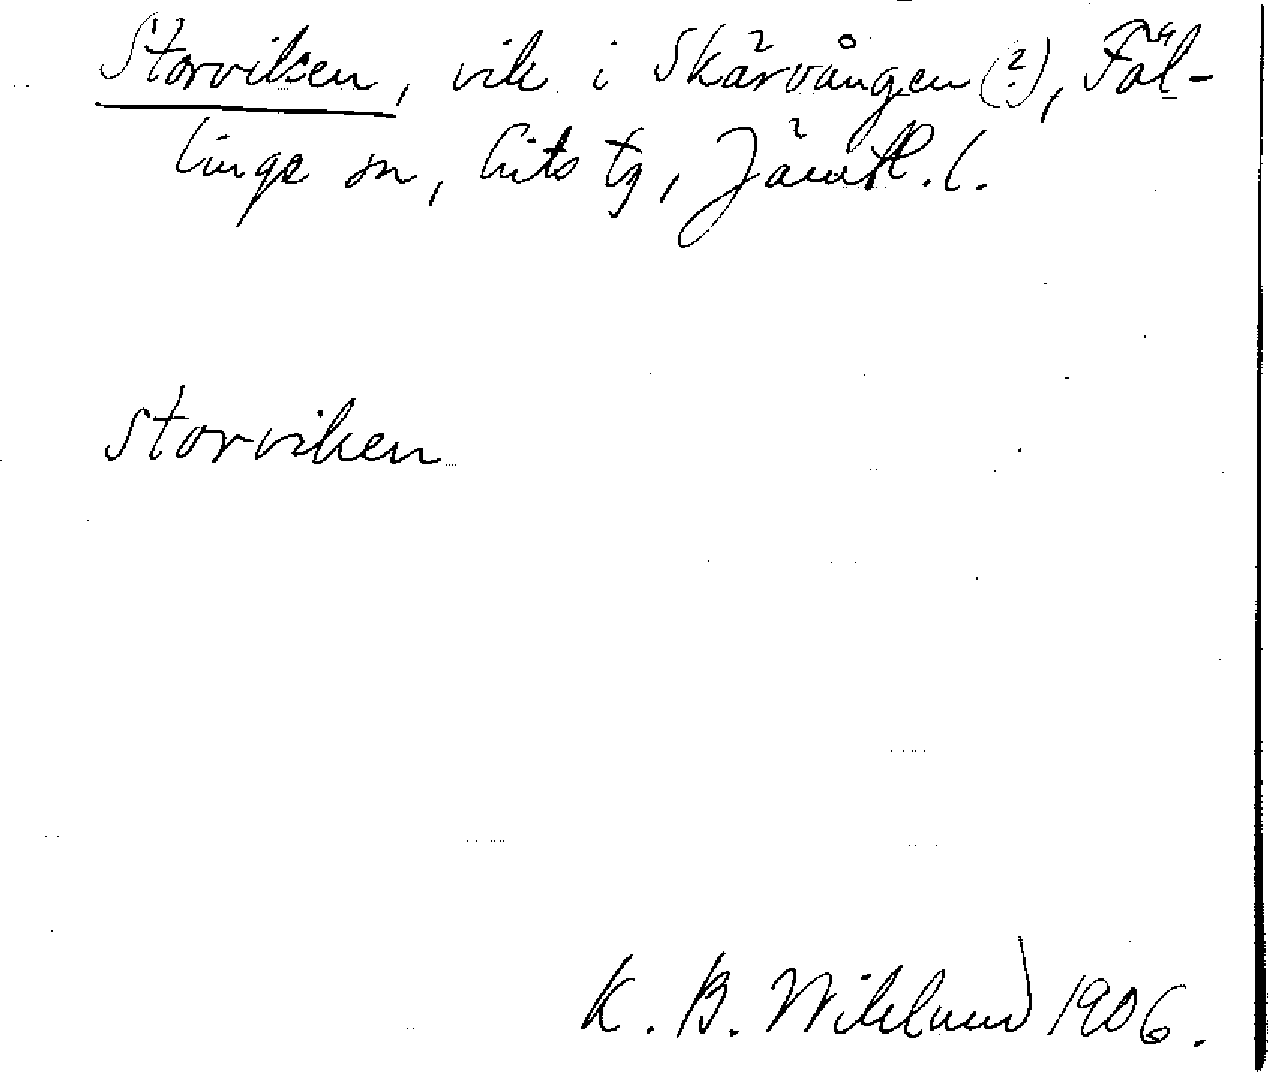 Storviken, vik i Skärvången (?), Föl-
linge sn, Lits tg, Jämtl. l.
Storviken
K. B. Wiklund 1906.